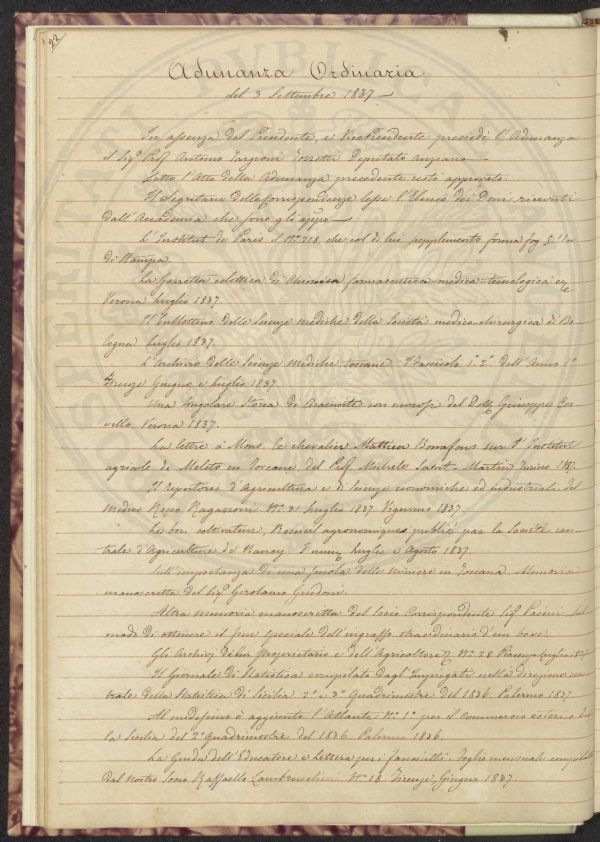 22
Adunanza Ordinaria
del 3 Settembre 1837 —
Per assenza del Presidente, e VicePresidente presiedé l'Adunanza
il Sig.r Prof. Antonio Targioni Tozzetti Deputato anziano —
Letto l'Atto della Adunanza precedente restò approvato
Il Segretario delle Corrispondenze lesse l'Elenco dei Doni ricevuti
dall'Accademia che sono gli appo —
L'Institut de Paris il N.o 218 che col di lui supplemento forma fog.
di Stampa.
La Gazzetta eclettica di Chimica farmaceutica-medica-tecnologica
Verona Luglio 1837.
Il Bullettino delle Scienze mediche della Società medico-chirurgica di Bo-
logna Luglio 1837.
L'Archivio delle Scienze Mediche toscane. Fascicolo 1.o 2.o dell'Anno 1.o
Firenze Giugno e Luglio 1837
Una singolare Storia di del Dott. Giuseppe Cer-
villo. Verona 1837.
La lettre à Mons. le chevalier Matthieu Bonafous sur l'Institut
agricole de Meleto en Toscane, del Prof. Michele Saint-Martin Torino 1837.
Il repertorio d'Agricoltura e di Scienze economiche ed industriali del
Medico Rocco Ragazzoni N.o 31 Luglio 1837. Vigevano 1837.
Le bon cultivateur, Recueil agronomique publié par la Société cen-
trale d'Agriculture de Nancy. Luglio e Agosto 1837.
Sull'importanza di una Scuola delle Miniere in Toscana. Memoria
manoscritta del Sig.r Girolamo Guidoni.
Altra memoria manoscritta del Socio Corrispondente Sig.r Pacini sul
modo di ottenere il fine speciale dell'ingrasso straordinario d'un bove.
Gli Archivj del Proprietario e dell'Agricoltore N.o 28 Piacenza Luglio 1837
Il Giornale di Statistica compilato dagl'Impiegati nella direzione cen-
trale della Statistica di Sicilia 2.o e 3.o Quadrimestre del 1836. Palermo 1837
Al medesimo è aggiunto l'Atlante N.o 1.o per il commercio esterno del-
la Sicilia del 2.o quadrimestre del 1836. Palermo 1836.
La Guida dell'Educatore e Lettura per i fanciulli. Foglio mensuale compilato
dal nostro Socio Raffaello Lambruschini. N.o 18 Firenze, Giugno 1837.